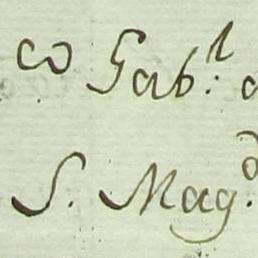 co Gab.l
S. Mag.d